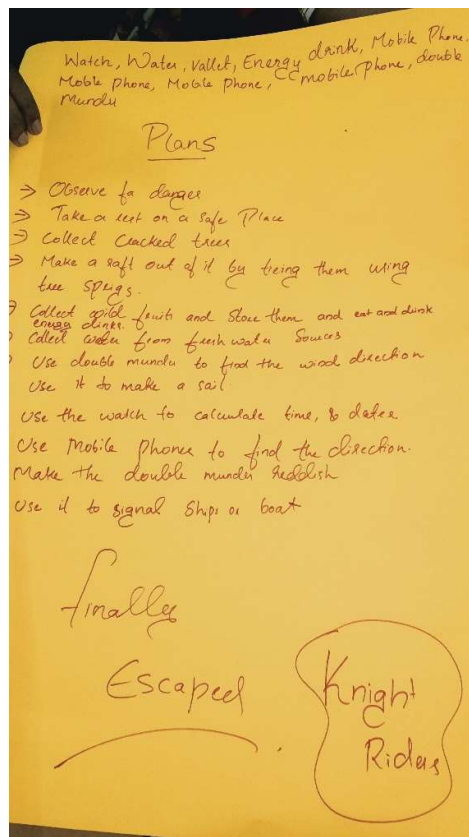 Watch, Water, Vallet, Energy drink, Mobile Phone.
Moble phone, Mobile phone, mobile phone, double
Mundu
Plans
→ Observe fa danger
→ Take a rest on a safe Place
→ Collect Cracked trees
→ Make a raft out of it by tieing them using
tree sprigs.
Collect wild fruits and store them and eat and drink
energy drinks.
Collect water from fresh water Sources
Use double mundu to find the wind direction
Use it to make a sail
Use the watch to calculate time, & dates
Use Mobile phones to find the direction.
Make the double mundu reddish
Use it to signal Ships or boat
finally
Escaped
Knight
Riders